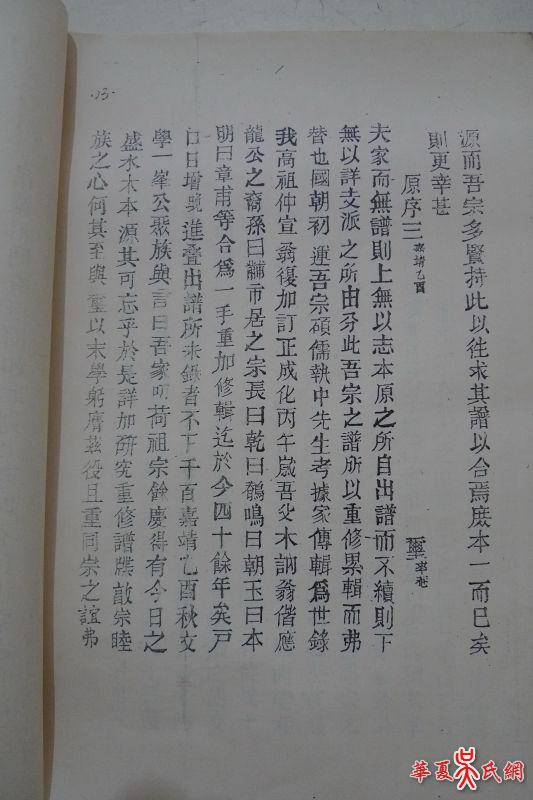 .13.
源而吾宗多賢持此以往求其譜以合焉庻本一而已矣
則更幸甚
原序三 嘉靖乙酉 璽 率菴
夫家而無譜則上無以志本原之所自出譜而不續則下
無以詳支派之所由分此吾宗之譜所以重修累輯而弗
替也國朝初運吾宗碩儒執中先生考據家傳輯爲世錄
我高祖仲宣翁復加訂正成化丙午歲吾父木訥翁偕應
龍公之裔孫曰黼市居之宗長曰乾曰鶴鳴曰朝玉曰本
明曰章甫等合爲一手重加修輯迄於今四十餘年矣戸
口日增興進叠出譜所未錄者不下千百嘉靖乙酉秋文
學一峯公聚族與言曰吾家叨荷祖宗餘慶得有今日之
盛水木本源其可忘乎於是詳加研究重修譜牒敢宗睦
族之心何其至與璽以末學躬膺茲役且重同宗之誼弗
華夏吴氏網